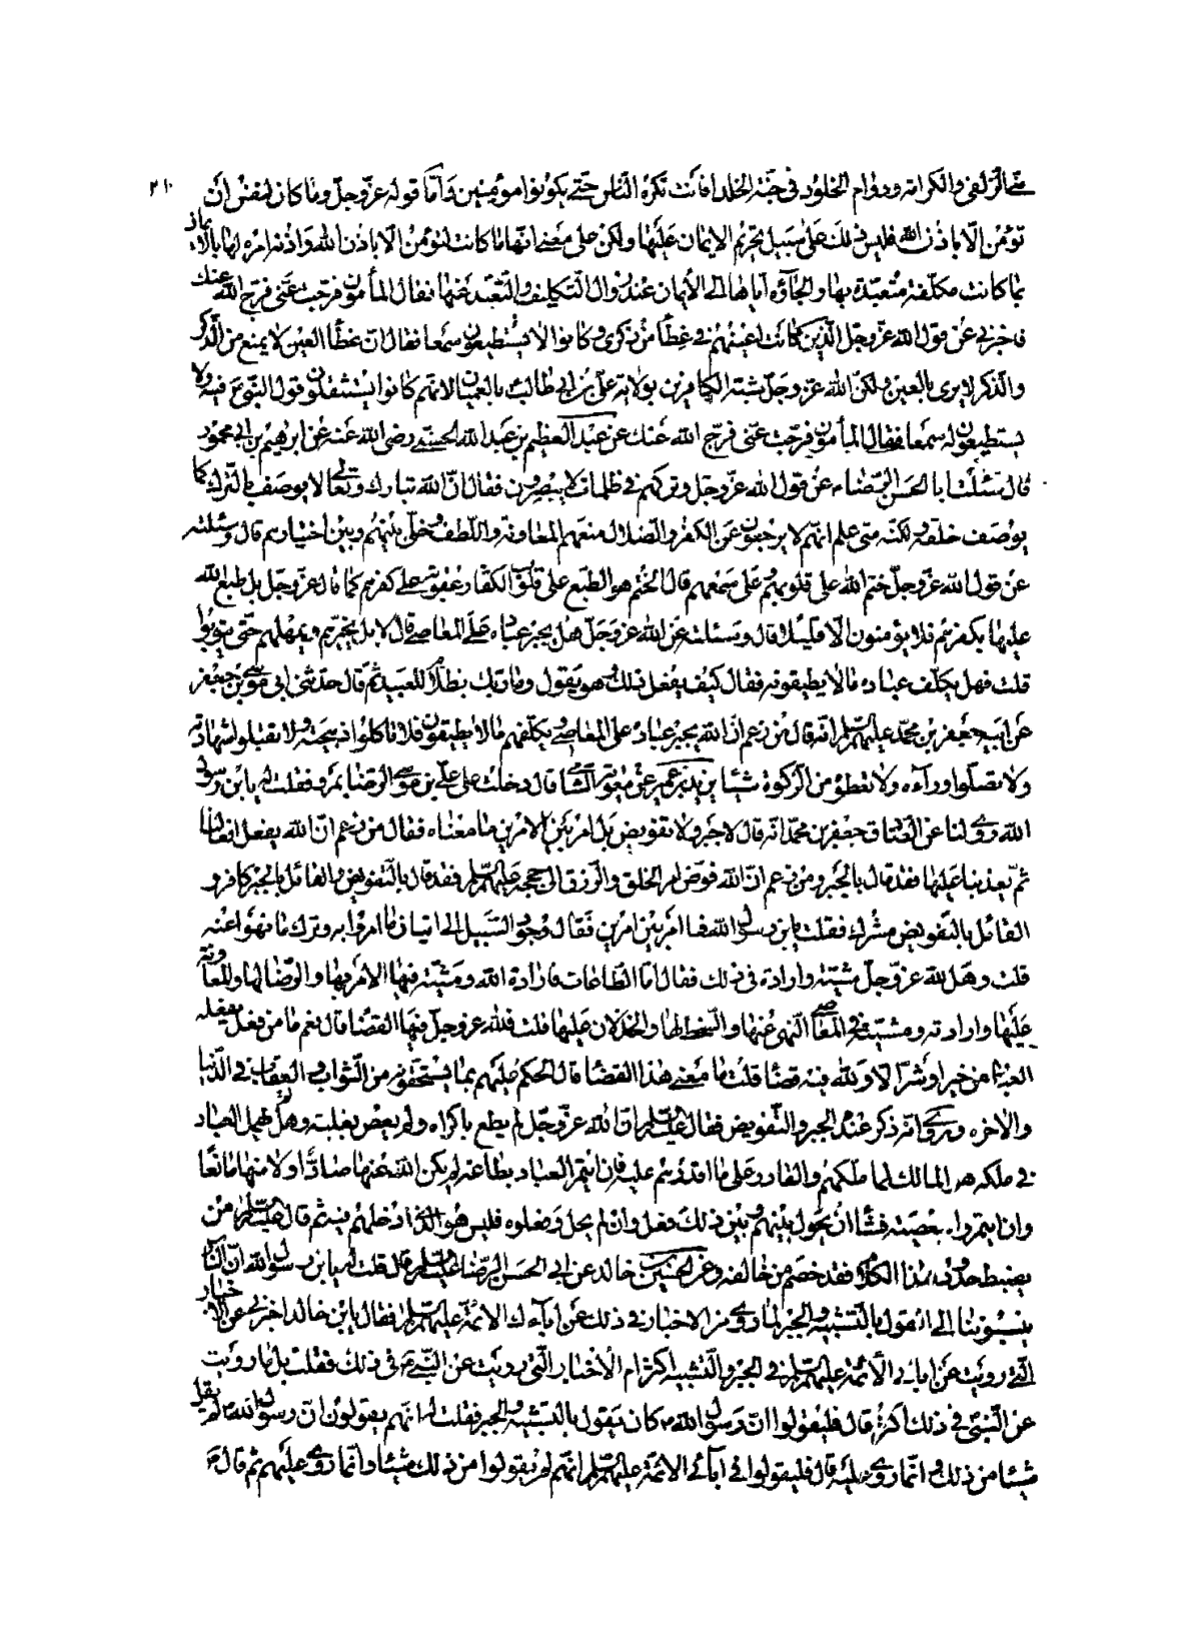 منى الزلفى والكرامة ودوام الخلود فى جنة الخلد افانت تكره الناس حتى يكونوا مؤمنين وامّا قوله عزّ وجلّ وما كان لنفس ان ٢١٠
تؤمن الّا باذن الله فليس ذلك على سبيل تحريم الايمان عليها ولكن على معنى انّها ما كانت لتؤمن الّا باذن الله واذنه امره لها بالايمان
ما كانت مكلّفة متعبّدة بها والجاؤه اياها الى الايمان عند زوال التكليف والتعبّد عنها فقال المأمون فرّجت عنّى فرّج الله عنك
فاخبرنى عن قول الله عزّ وجلّ الّذين كانت اعينهم فى غطاء من ذكرى وكانوا لا يستطيعون سمعا فقال انّ غطاء العين لا يمنع من الذكر
والذكر لا يرى بالعين ولكنّ الله عزّ وجلّ شبّه الكافرين بولاية علىّ بن ابى طالب بالعميان لانهم كانوا يستثقلون قول النبى ع فيه ولا
يستطيعون له سمعا فقال المأمون فرّجت عنّى فرّج الله عنك عن عبد العظيم بن عبد الله الحسنى رضى الله عنه عن ابرهيم بن ابى محمود
قال سئلت ابا الحسن الرضا ع عن قول الله عزّ وجلّ وتركهم فى ظلمات لا يبصرون فقال انّ الله تبارك وتعالى لا يوصف بالترك كما
يوصف خلقه لكنّه متى علم انّهم لا يرجعون عن الكفر والضلال منعهم المعاونة واللطف وخلّى بينهم وبين اختيارهم قال وسئلته
عن قول الله عزّ وجلّ ختم الله على قلوبهم وعلى سمعهم قال الختم هو الطبع على قلوب الكفّار عقوبة على كفرهم كما قال عزّ وجلّ بل طبع الله
عليها بكفرهم فلا يؤمنون الّا قليلا قال وسئلته عن الله عزّ وجلّ هل يجبر عباده على المعاصى قال لا بل يخيّرهم ويمهلهم حتى يتوبوا
قلت فهل يكلّف عباده ما لا يطيقونه فقال كيف يفعل ذلك وهو يقول وما ربّك بظلّام للعبيد ثم قال حدّثنى ابى موسى بن جعفر
عن ابيه جعفر بن محمّد عليهم السلم انّه قال من زعم انّ الله يجبر عباده على المعاصى ويكلّفهم ما لا يطيقون فلا تأكلوا ذبيحته ولا تقبلوا شهادته
ولا تصلّوا وراءه ولا تعطوه من الزكوة شيئا يزيد بن عمير بن معوية الشامى قال دخلت على علىّ بن موسى الرضا بمرو فقلت له يابن رسول
الله روى لنا عن الصادق جعفر بن محمّد انّه قال لا جبر ولا تفويض بل امر بين الامرين ما معناه فقال من زعم انّ الله يفعل افعالنا
ثم يعذّبنا عليها فقد قال بالجبر ومن زعم انّ الله فوّض امر الخلق والرزق الى حججه عليهم السلم فقد قال بالتفويض والقائل بالجبر كافر و
القائل بالتفويض مشرك فقلت يابن رسول الله فما امر بين امرين فقال وجود السبيل الى اتيان ما امروا به وترك ما نهوا عنه
قلت وهل لله عزّ وجلّ مشيّة وارادة فى ذلك فقال امّا الطاعات فارادة الله ومشيّته فيها الامر بها والرضا لها والمعاونة
عليها وارادته ومشيّته فى المعاصى النهى عنها والسخط لها والخذلان عليها قلت فلله عزّ وجلّ فيها القضاء قال نعم ما من فعل يفعله
العباد من خير او شرّ الّا ولله فيه قضاء قلت ما معنى هذا القضاء قال الحكم عليهم بما يستحقّونه من الثواب والعقاب فى الدنيا
والاخره وروى انّه ذكر عنده الجبر والتفويض فقال عليه السلم انّ الله عزّ وجلّ لم يطع باكراه ولم يعص بغلبة ولم يهمل العباد
فى ملكه هو المالك لما ملكهم والقادر على ما اقدرهم عليه فان ائتمر العباد بطاعته لم يكن الله عنها صادّا ولا منها مانعا
وان ائتمروا بمعصيته فشاء ان يحول بينهم وبين ذلك فعل وان لم يحل وفعلوه فليس هو الذى ادخلهم فيه ثم قال عليه السلم من
يضبط حدود هذا الكلام فقد خصم من خالفه وعن الحسين بن خالد عن ابى الحسن الرضا عليه السلم قال قلت له يابن رسول الله انّ الناس
ينسبوننا الى القول بالتشبيه والجبر لما روى من الاخبار فى ذلك عن ابائك الائمة عليهم السلم فقال يابن خالد اخبرنى عن الاخبار
التى رويت عن ابائى الائمة عليهم السلم فى الجبر والتشبيه اكثر ام الاخبار التى رويت عن النبى ص فى ذلك فقلت بل ما رويت
عن النبى فى ذلك اكثر قال فليقولوا انّ رسول الله ص كان يقول بالتشبيه والجبر فقلت له انّهم يقولون انّ رسول الله ص لم يقل
شيئا من ذلك وانّما روى عليه قال فليقولوا فى آبائى الائمة عليهم السلم انّهم لم يقولوا من ذلك شيئا وانّما روى عليهم ثم قال ع